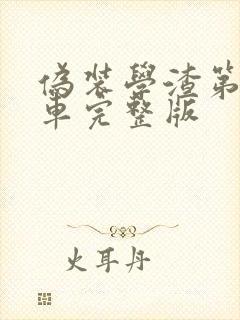 偽裝學渣第
車完整版
火耳丹